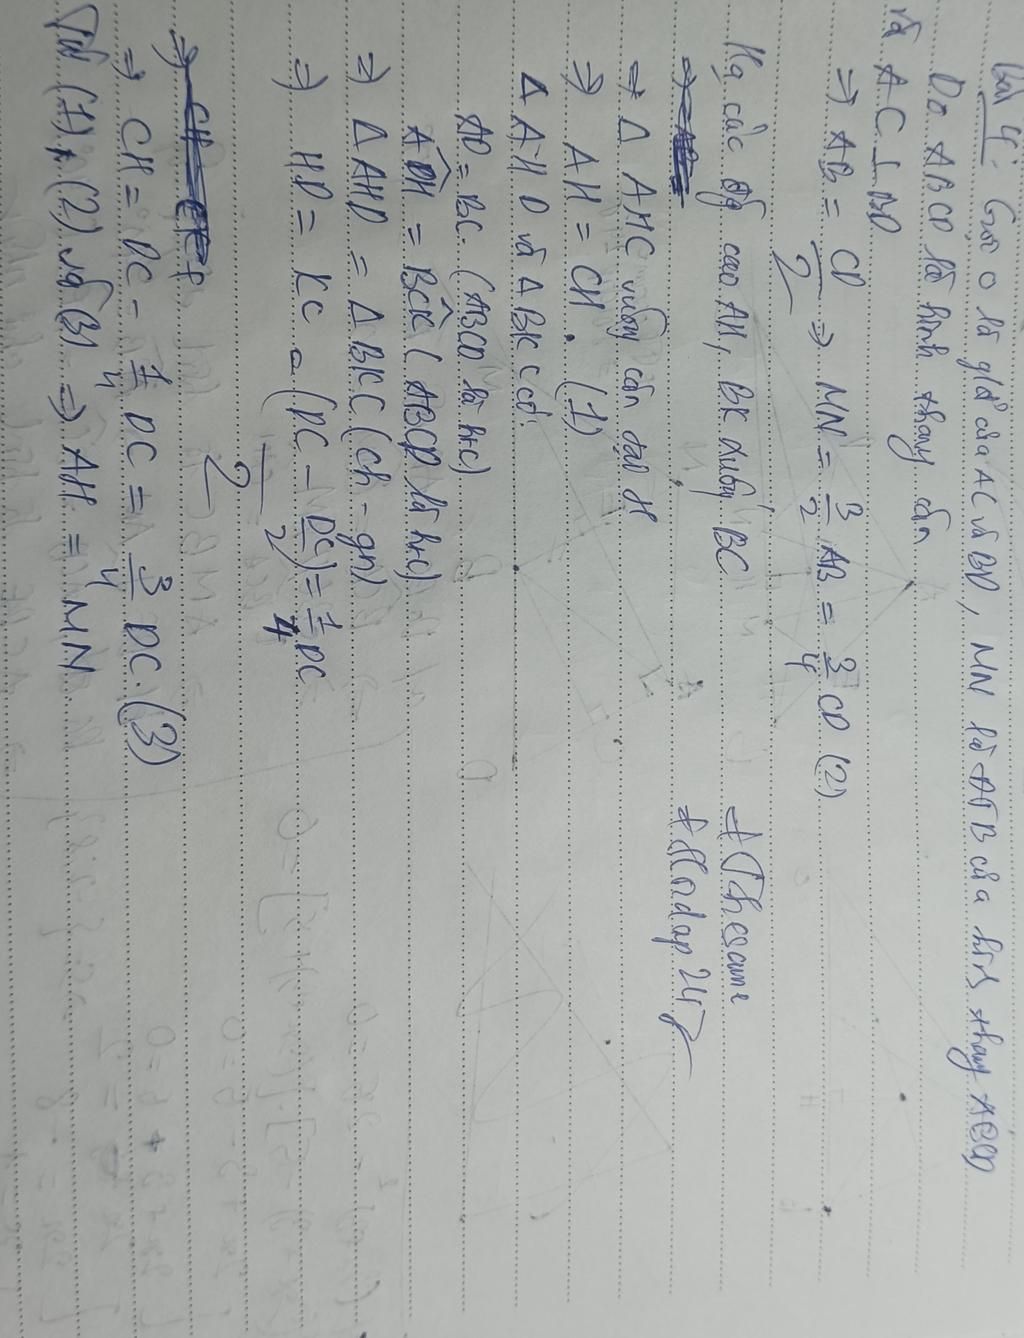 Bài 4: Gọi O là gđ' của AC và BD, MN là ĐTB của hình thang ABCD
Do ABCD là hình thang cân
và AC ⊥ BD
⇒ AB = CD/2 ⇒ MN = 3/2 AB = 3/4 CD (2)
Hạ các đg cao AH, BK xuống BC
⇒ Δ AHC vuông cân tại H
⇒ AH = CH. (1)
Δ AHD và Δ BKC có:
AD = BC. (ABCD là htc)
ADH = BCK (ABCD là htc)
⇒ Δ AHD = Δ BKC (ch - gn)
⇒ HD = KC = (DC - DC/2)/2 = 1/4 DC
⇒ CH = DC - 1/4 DC = 3/4 DC. (3)
Từ (1), (2) và (3) ⇒ AH = MN
#Thesame
#Hoidap247